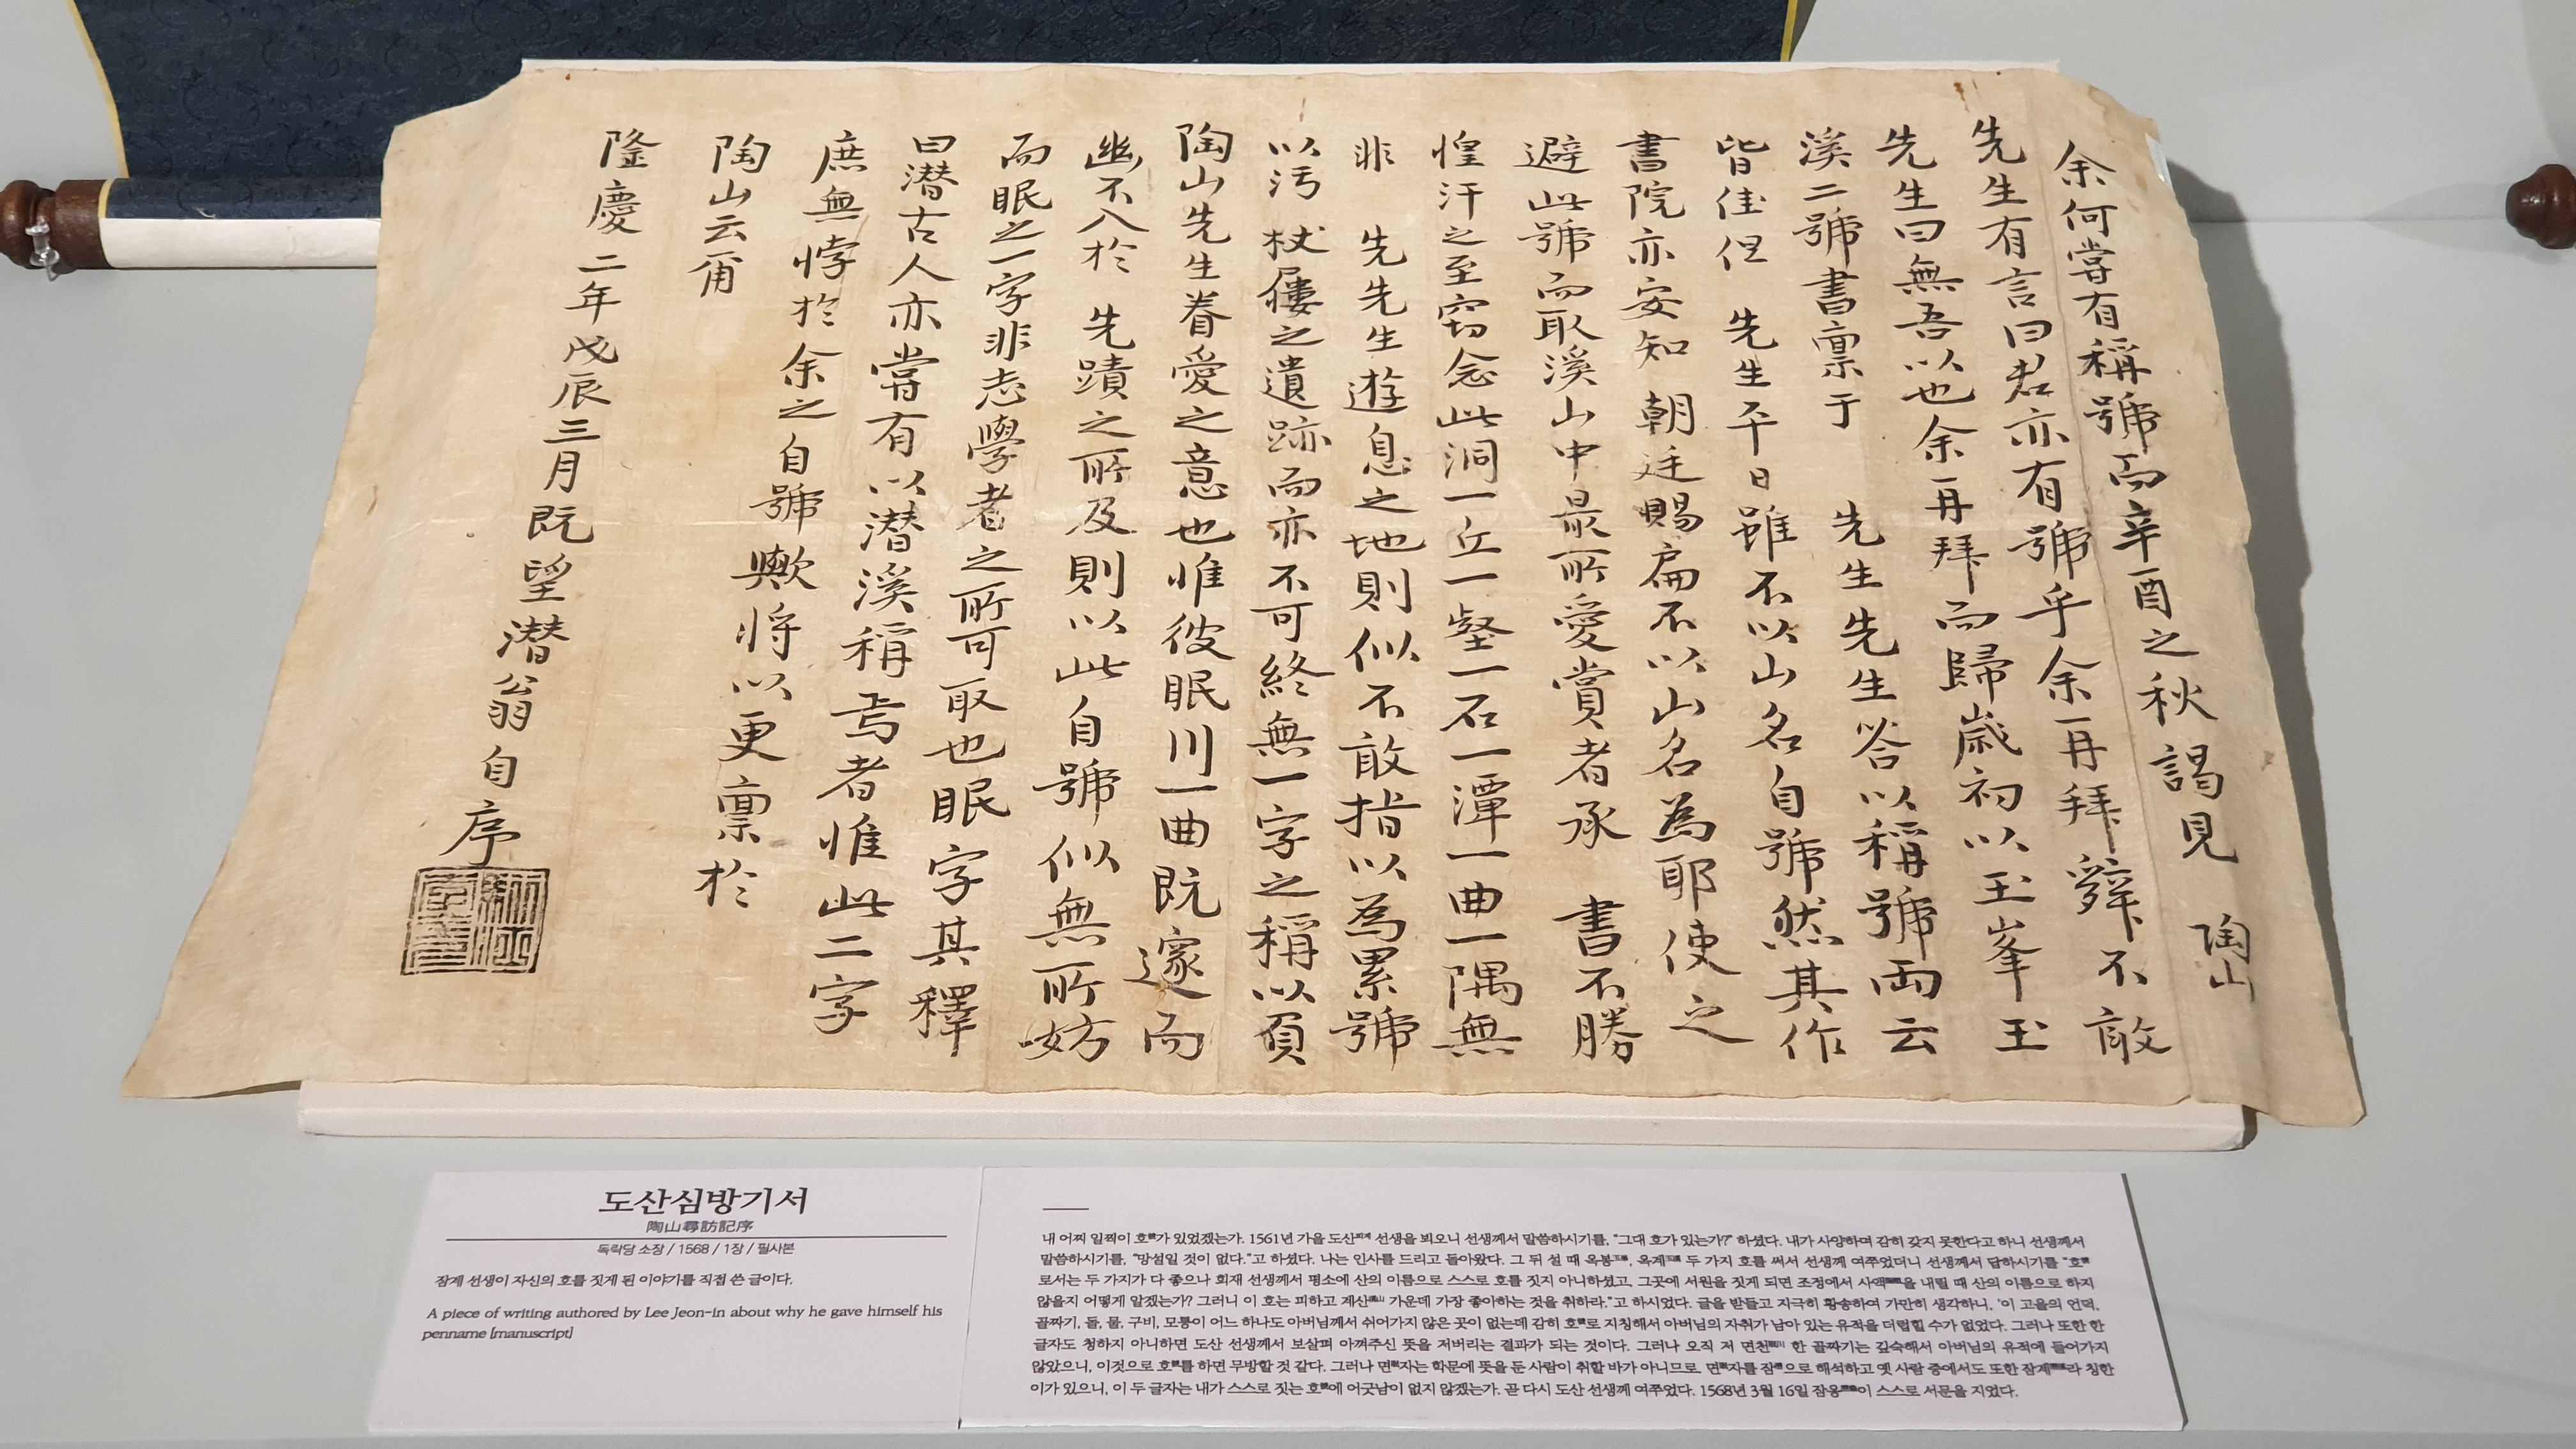 余何嘗有稱號而辛酉之秋謁見 陶山
先生有言曰君亦有號乎余再拜辭不敢
先生曰無吾以也余再拜而歸歲初以玉峯玉
溪二號書稟于 先生先生答以稱號兩云
皆佳但 先生平日雖不以山名自號然其作
書院亦安知 朝廷賜扁不以山名為耶使之
避此號而取溪山中最所愛賞者承 書不勝
惶汗之至窃念此洞一丘一壑一石一潭一曲一隅無
非 先先生遊息之地則似不敢指以為累號
以汚 杖屨之遺跡而亦不可終無一字之稱以負
陶山先生眷愛之意也惟彼眠川一曲既邃而
幽不入於 先蹟之所及則以此自號似無所妨
而眠之一字非志學者之所可取也眠字其釋
曰潛古人亦嘗有以潛溪稱焉者惟此二字
庶無悖於余之自號歟將以更稟於
陶山云甭
隆慶二年戊辰三月既望潛翁自序
도산심방기서
陶山尋訪記序
독락당 소장 / 1568 / 1장 / 필사본
잠계 선생이 자신의 호를 짓게 된 이야기를 직접 쓴 글이다.
A piece of writing authored by Lee Jeon-in about why he gave himself his
penname [manuscript]
내 어찌 일찍이 호가 있었겠는가. 1561년 가을 도산 선생을 뵈오니 선생께서 말씀하시기를, “그대 호가 있는가?” 하셨다. 내가 사양하여 감히 갖지 못한다고 하니 선생께서
말씀하시기를, “망설일 것이 없다.”고 하셨다. 나는 인사를 드리고 돌아왔다. 그 뒤 설 때 옥봉, 옥계 두 가지 호를 써서 선생께 여쭈었더니 선생께서 답하시기를 “호
로서는 두 가지가 다 좋으나 회재 선생께서 평소에 산의 이름으로 스스로 호를 짓지 아니하셨고, 그곳에 서원을 짓게 되면 조정에서 사액을 내릴 때 산의 이름으로 하지
않을지 어떻게 알겠는가? 그러니 이 호는 피하고 계산 가운데 가장 좋아하는 것을 취하라.”고 하시었다. 글을 받들고 지극히 황송하여 가만히 생각하니, ‘이 고을의 언덕,
골짜기, 돌, 물, 구비, 모퉁이 어느 하나도 아버님께서 쉬어가지 않은 곳이 없는데 감히 호로 지칭해서 아버님의 자취가 남아 있는 유적을 더럽힐 수가 없었다. 그러나 또한 한
글자도 청하지 아니하면 도산 선생께서 보살펴 아껴주신 뜻을 저버리는 결과가 되는 것이다. 그러나 오직 저 면천 한 골짜기는 깊숙해서 아버님의 유적에 들어가지
않았으니, 이것으로 호를 하면 무방할 것 같다. 그러나 면자는 학문에 뜻을 둔 사람이 취할 바가 아니므로 면자를 잠으로 해석하고 옛 사람 중에서도 또한 잠계라 칭한
이가 있으니, 이 두 글자는 내가 스스로 짓는 호에 어긋남이 없지 않겠는가. 곧 다시 도산 선생께 여쭈었다. 1568년 3월 16일 잠옹이 스스로 서문을 지었다.